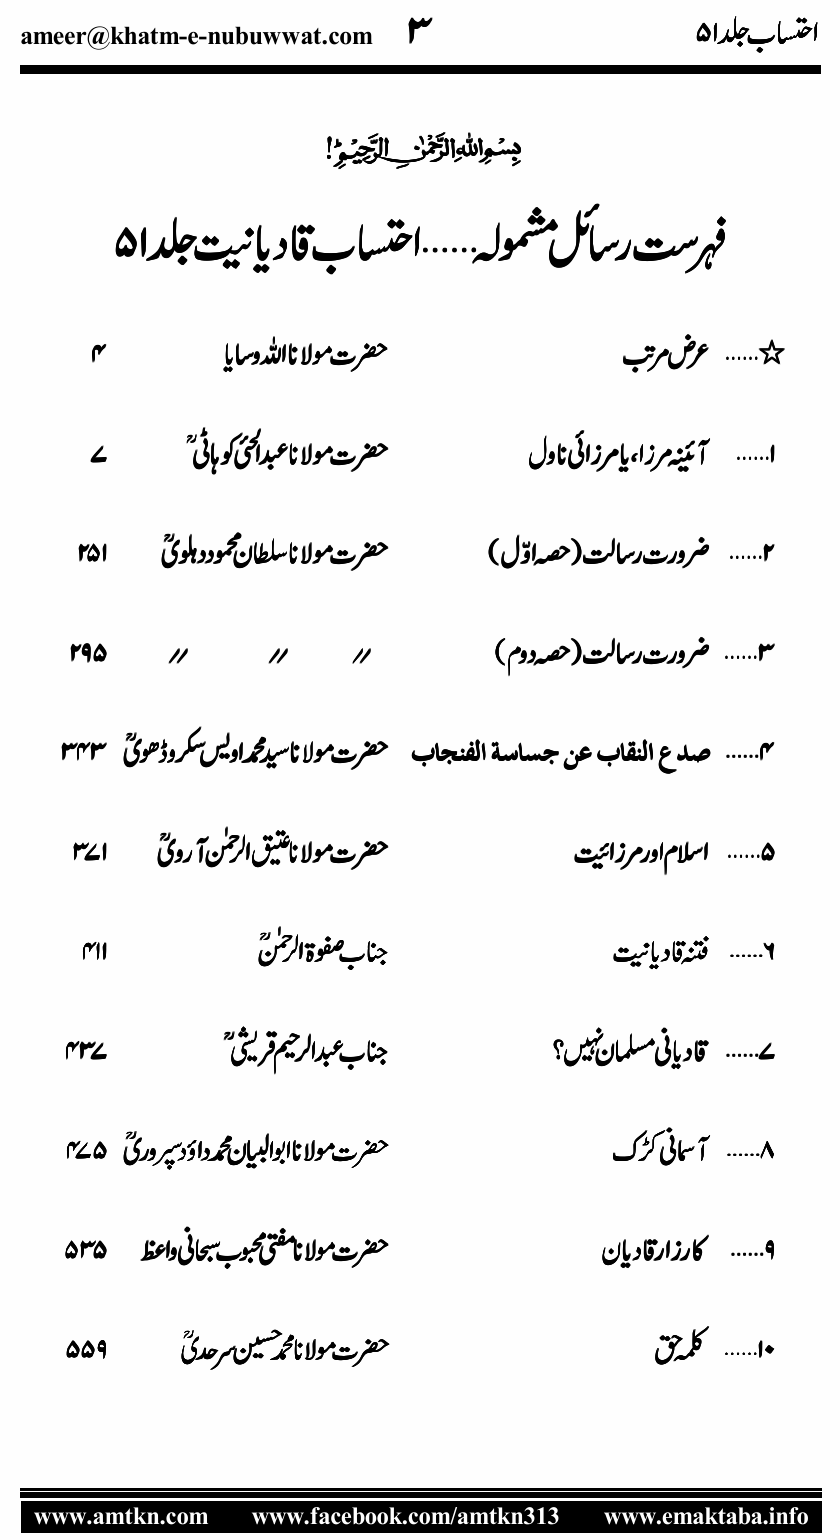 احتساب جلد ۵۱ ۳ ameer@khatm-e-nubuwwat.com
بسم اللہ الرحمٰن الرحیم!
فہرست رسائل مشمولہ......احتساب قادیانیت جلد ۵۱
☆...... عرض مرتب حضرت مولانا اللہ وسایا ۴
۱...... آئینہ مرزا، یا مرزائی ناول حضرت مولانا عبدالحئی کوہاٹیؒ ۷
۲...... ضرورت رسالت (حصہ اوّل) حضرت مولانا سلطان محمود دہلویؒ ۲۵۱
۳...... ضرورت رسالت (حصہ دوم) // // // ۲۹۵
۴...... صدع النقاب عن جساسة الفنجاب حضرت مولانا سید محمد اویس سکروڈھویؒ ۳۴۳
۵...... اسلام اور مرزائیت حضرت مولانا عتیق الرحمٰن آرویؒ ۳۷۱
۶...... فتنہ قادیانیت جناب صفوۃ الرحمٰنؒ ۴۱۱
۷...... قادیانی مسلمان نہیں؟ جناب عبدالرحیم قریشیؒ ۴۳۷
۸...... آسمانی کڑک حضرت مولانا ابوالبیان محمد داؤد سپروریؒ ۴۷۵
۹...... کارزار قادیان حضرت مولانا مفتی محبوب سبحانی واعظ ۵۳۵
۱۰...... کلمہ حق حضرت مولانا محمد حسین سرحدیؒ ۵۵۹
www.amtkn.com www.facebook.com/amtkn313 www.emaktaba.info